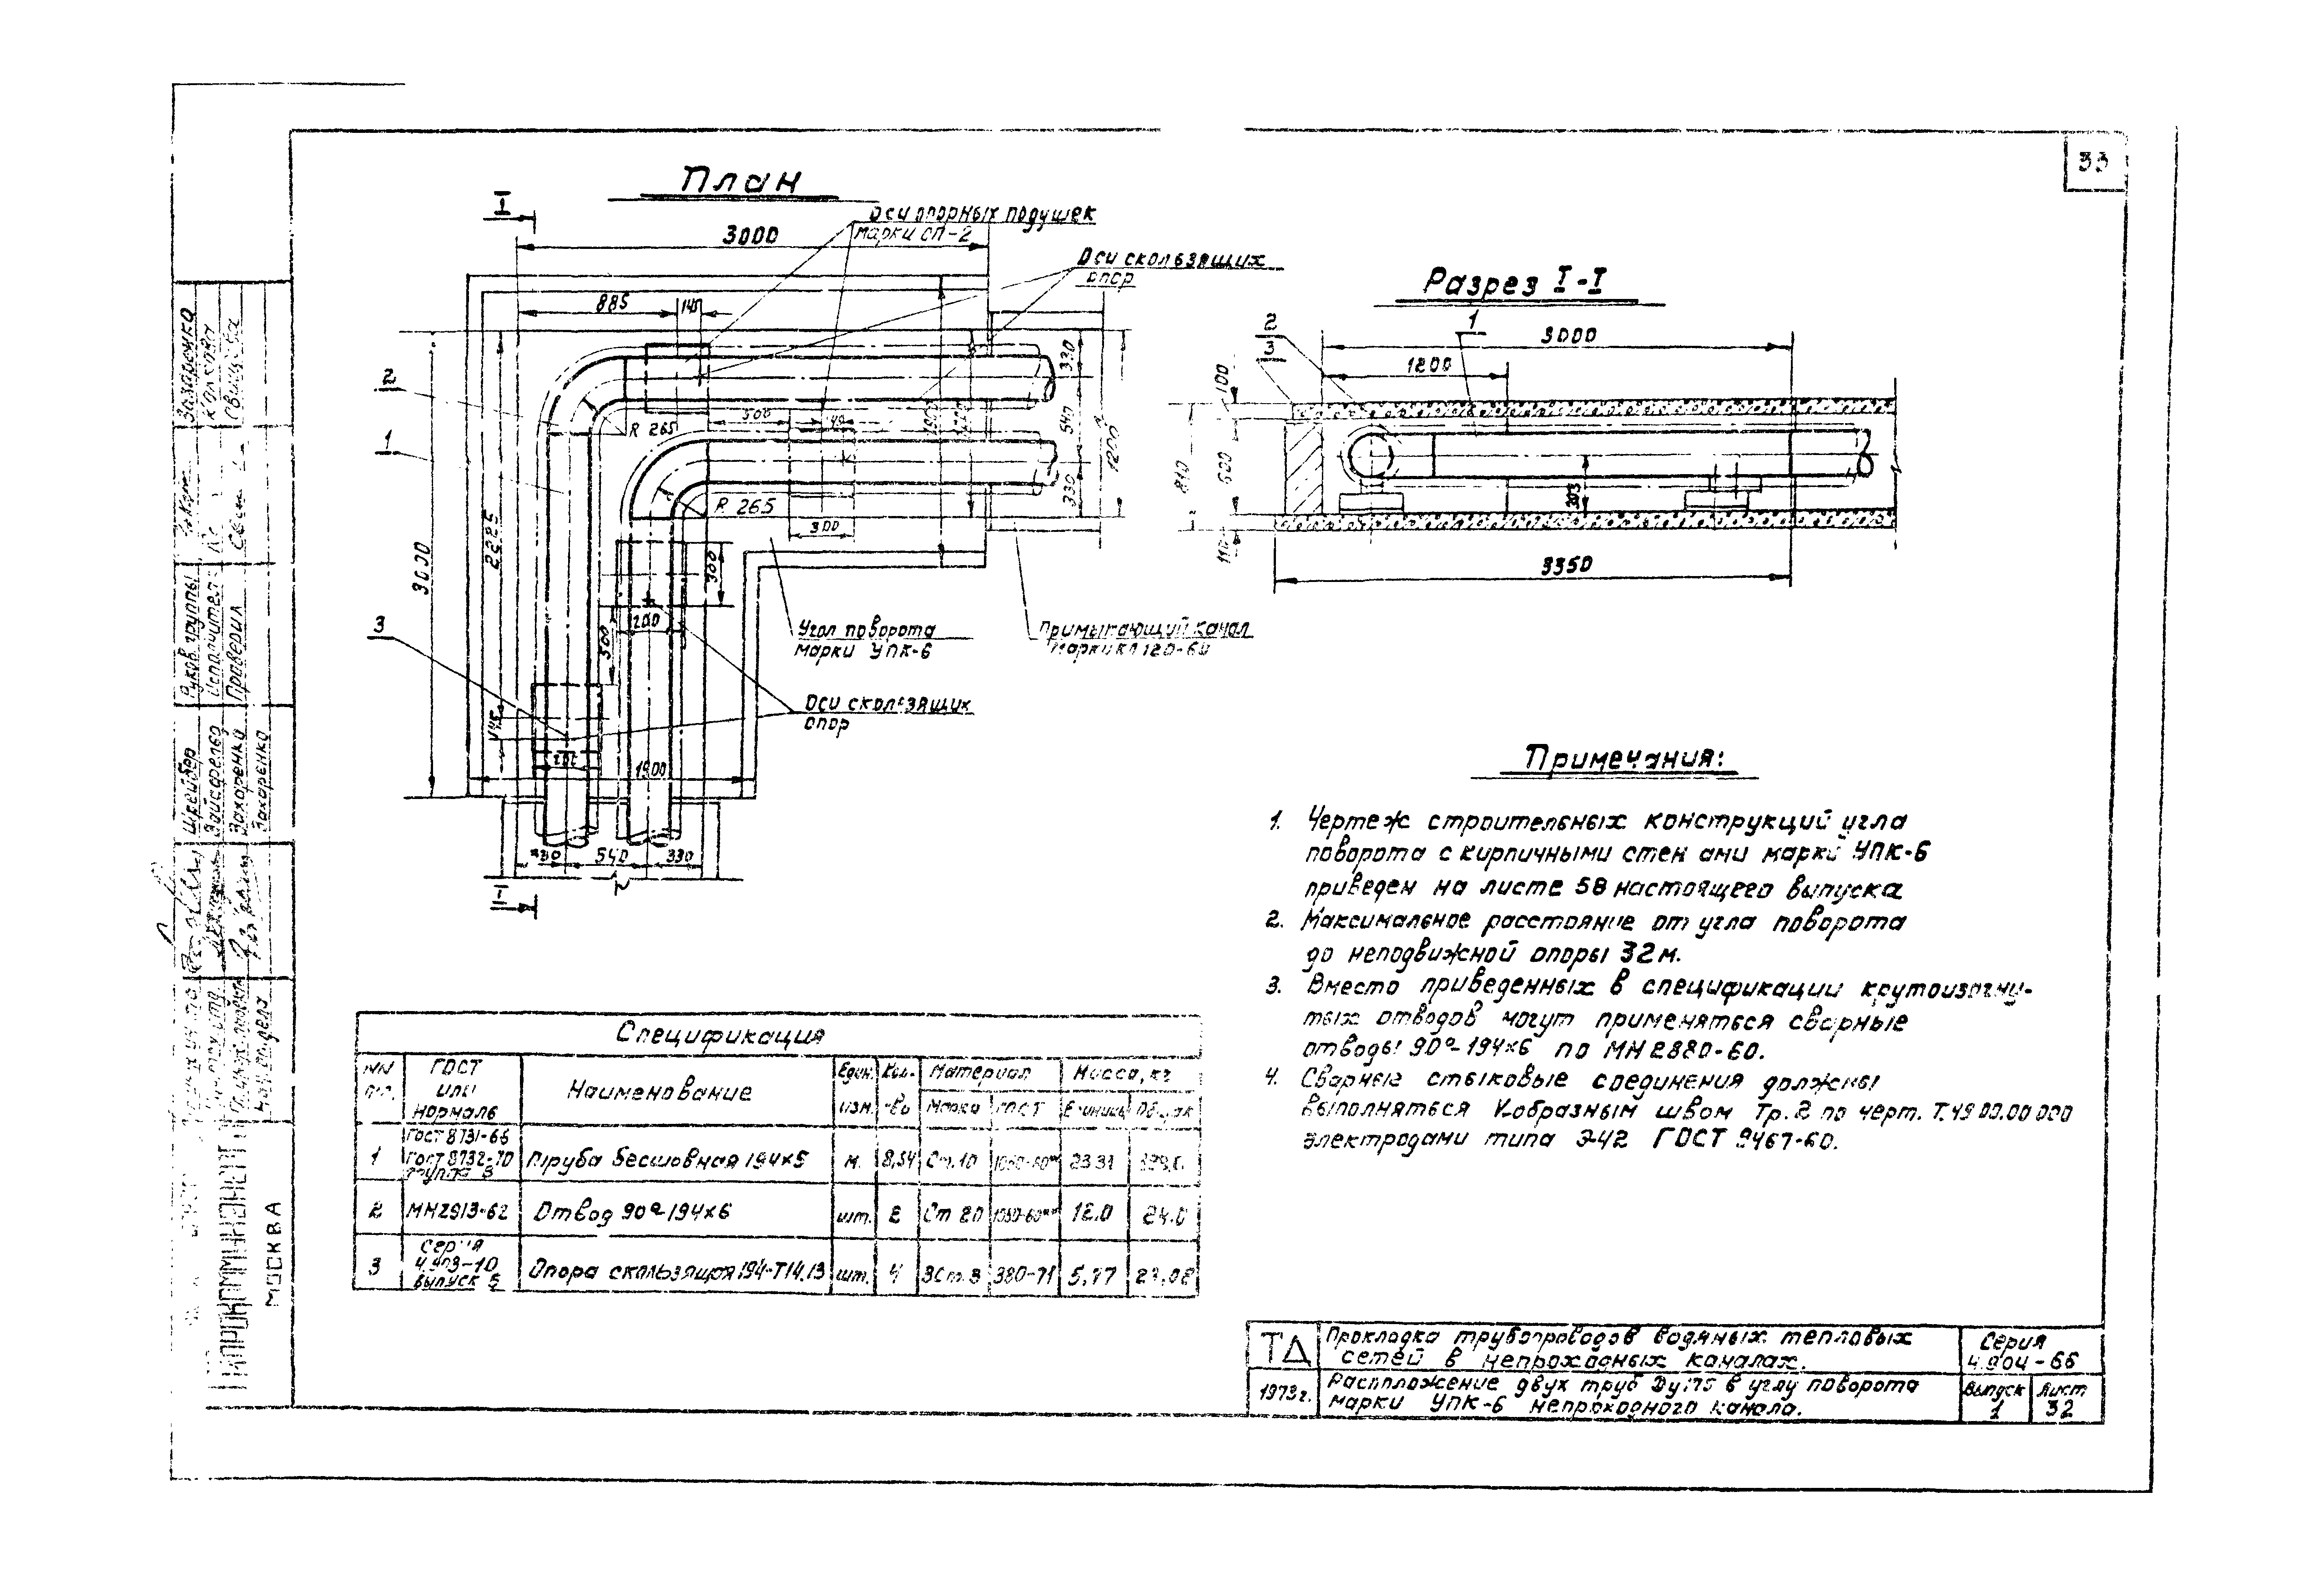 33
План
I
3000
Оси опорных подушек
марки ОП-2
Оси скользящих
опор
885
140
2
1
R 265
500
330
540
1200
330
R 265
300
2225
3000
300
200
500
3
Угол поворота
марки УПК-6
Примыкающий канал
марки КЛ 120-60
Оси скользящих
опор
145
1900
540
330
I
Разрез I-I
2
3
1
3000
1200
100
600
810
110
303
3350
Примечания:
1. Чертеж строительных конструкций угла
поворота с кирпичными стенами марки УПК-6
приведен на листе 58 настоящего выпуска
2. Максимальное расстояние от угла поворота
до неподвижной опоры 32м.
3. Вместо приведенных в спецификации крутоизогну-
тых отводов могут применяться сварные
отводы 90°-194×6 по МН 2880-60.
4. Сварные стыковые соединения должны
выполняться V-образным швом Тр.2 по черт. Т.49.00.00 000
электродами типа Э-42 ГОСТ 9467-60.
Спецификация
NN п.п. ГОСТ или нормаль Наименование Един. изм. Кол-во Материал Масса, кг
Марка ГОСТ Единицы Общая
1 ГОСТ 8731-66 ГОСТ 8732-70 группа В Труба бесшовная 194×5 м. 8,54 Ст.10 1050-60** 23.31
2 МН2913-62 Отвод 90°-194×6 шт. 2 Ст 20 1050-60** 12.0 24.0
3 Серия 4.903-10 выпуск 5 Опора скользящая 194-Т14.13 шт. 4 ВСт.3 380-71 5,77 23,08
ТД
Прокладка трубопроводов водяных тепловых
сетей в непроходных каналах.
Серия
4.904-66
1973г.
Расположение двух труб Ду175 в углу поворота
марки УПК-6 непроходного канала.
Выпуск
1
Лист
32
Руков. группы
Исполнитель
Проверил
Захаренко
Захаренко
МОСКВА